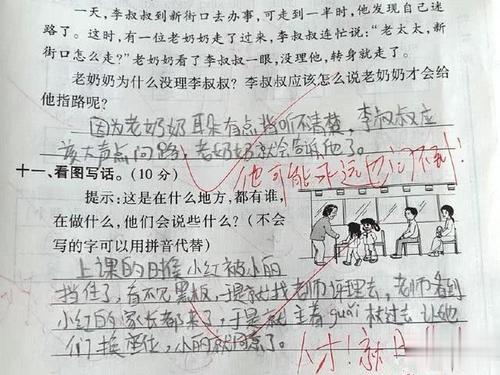 一天，李叔叔到新街口去办事，可走到一半时，他发现自己迷
路了。这时，有一位老奶奶走了过来，李叔叔连忙说：“老太太，新
街口怎么走？”老奶奶看了李叔叔一眼，没理他，转身就走了。
老奶奶为什么没理李叔叔？李叔叔应该怎么说老奶奶才会给
他指路呢？
因为老奶奶耳朵有点挡听不清楚，李叔叔应
该大声点问路，老奶奶就会告诉他了。
他可能永远也问不到！
十一、看图写话。（10 分）
提示：这是在什么地方，都有谁，
在做什么，他们会说些什么？（不会
写的字可以用拼音代替）
上课的时候小红被小丽
挡住了，看不见黑板，于是就找老师评理去，老师看到
小红的家长都来了，于是就主着 guǎi 杖过去让他
们换座位，小丽就同意了。
人才！